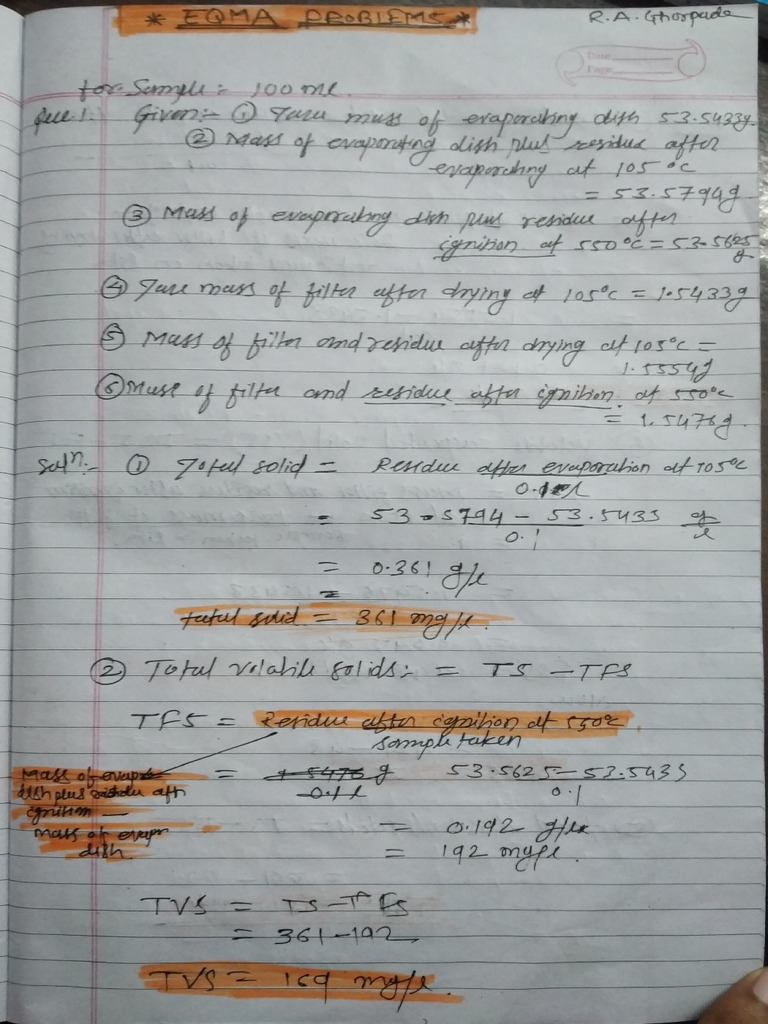 * EQMA PROBLEMS *
R.A. Ghorpade
Date
Page
for Sample:- 100 ml.
Que 1. Given:- ① Tare mass of evaporating dish 53.5433g.
② Mass of evaporating dish plus residue after
evaporating at 105 °c
= 53.5794g
③ Mass of evaporating dish plus residue after
ignition at 550°c = 53.5625
g
④ Tare mass of filter after drying at 105°c = 1.5433g
⑤ Mass of filter and residue after drying at 105°c =
1.5554g
⑥ Mass of filter and residue after ignition at 550°c
= 1.5476g.
Solⁿ:- ① Total solid = Residue after evaporation at 105°c
0.1 l
= 53.5794 - 53.5433 g/l
0.1
= 0.361 g/l
=
total solid = 361 mg/l.
② Total volatile solids:- = TS - TFS
TFS = Residue after ignition at 550°c
sample taken
Mass of evapo = 1.5476 g 53.5625 - 53.5433
dish plus residu aft 0.1 l 0.1
ignition —
mass of evapr = 0.192 g/l
dish. = 192 mg/l.
TVS = TS - TFS
= 361 - 192
TVS = 169 mg/l.